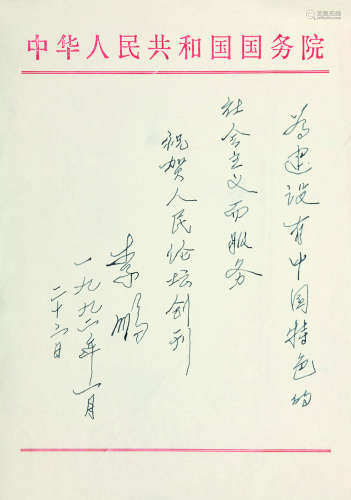 中华人民共和国国务院
为建设有中国特色的
社会主义而服务
祝贺人民论坛创刊
李鹏
一九九二年一月
二十六日